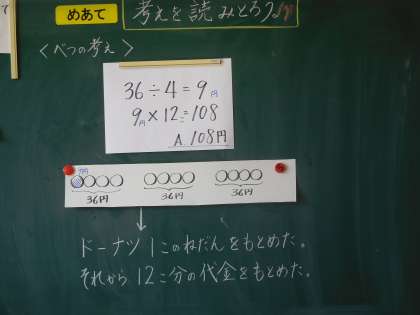 めあて 考えを読みとろう。
＜べつの考え＞
36÷4=9円
9円×12=108
A 108円
9円
36円 36円 36円
ドーナツ1このねだんをもとめた。
それから12こ分の代金をもとめた。